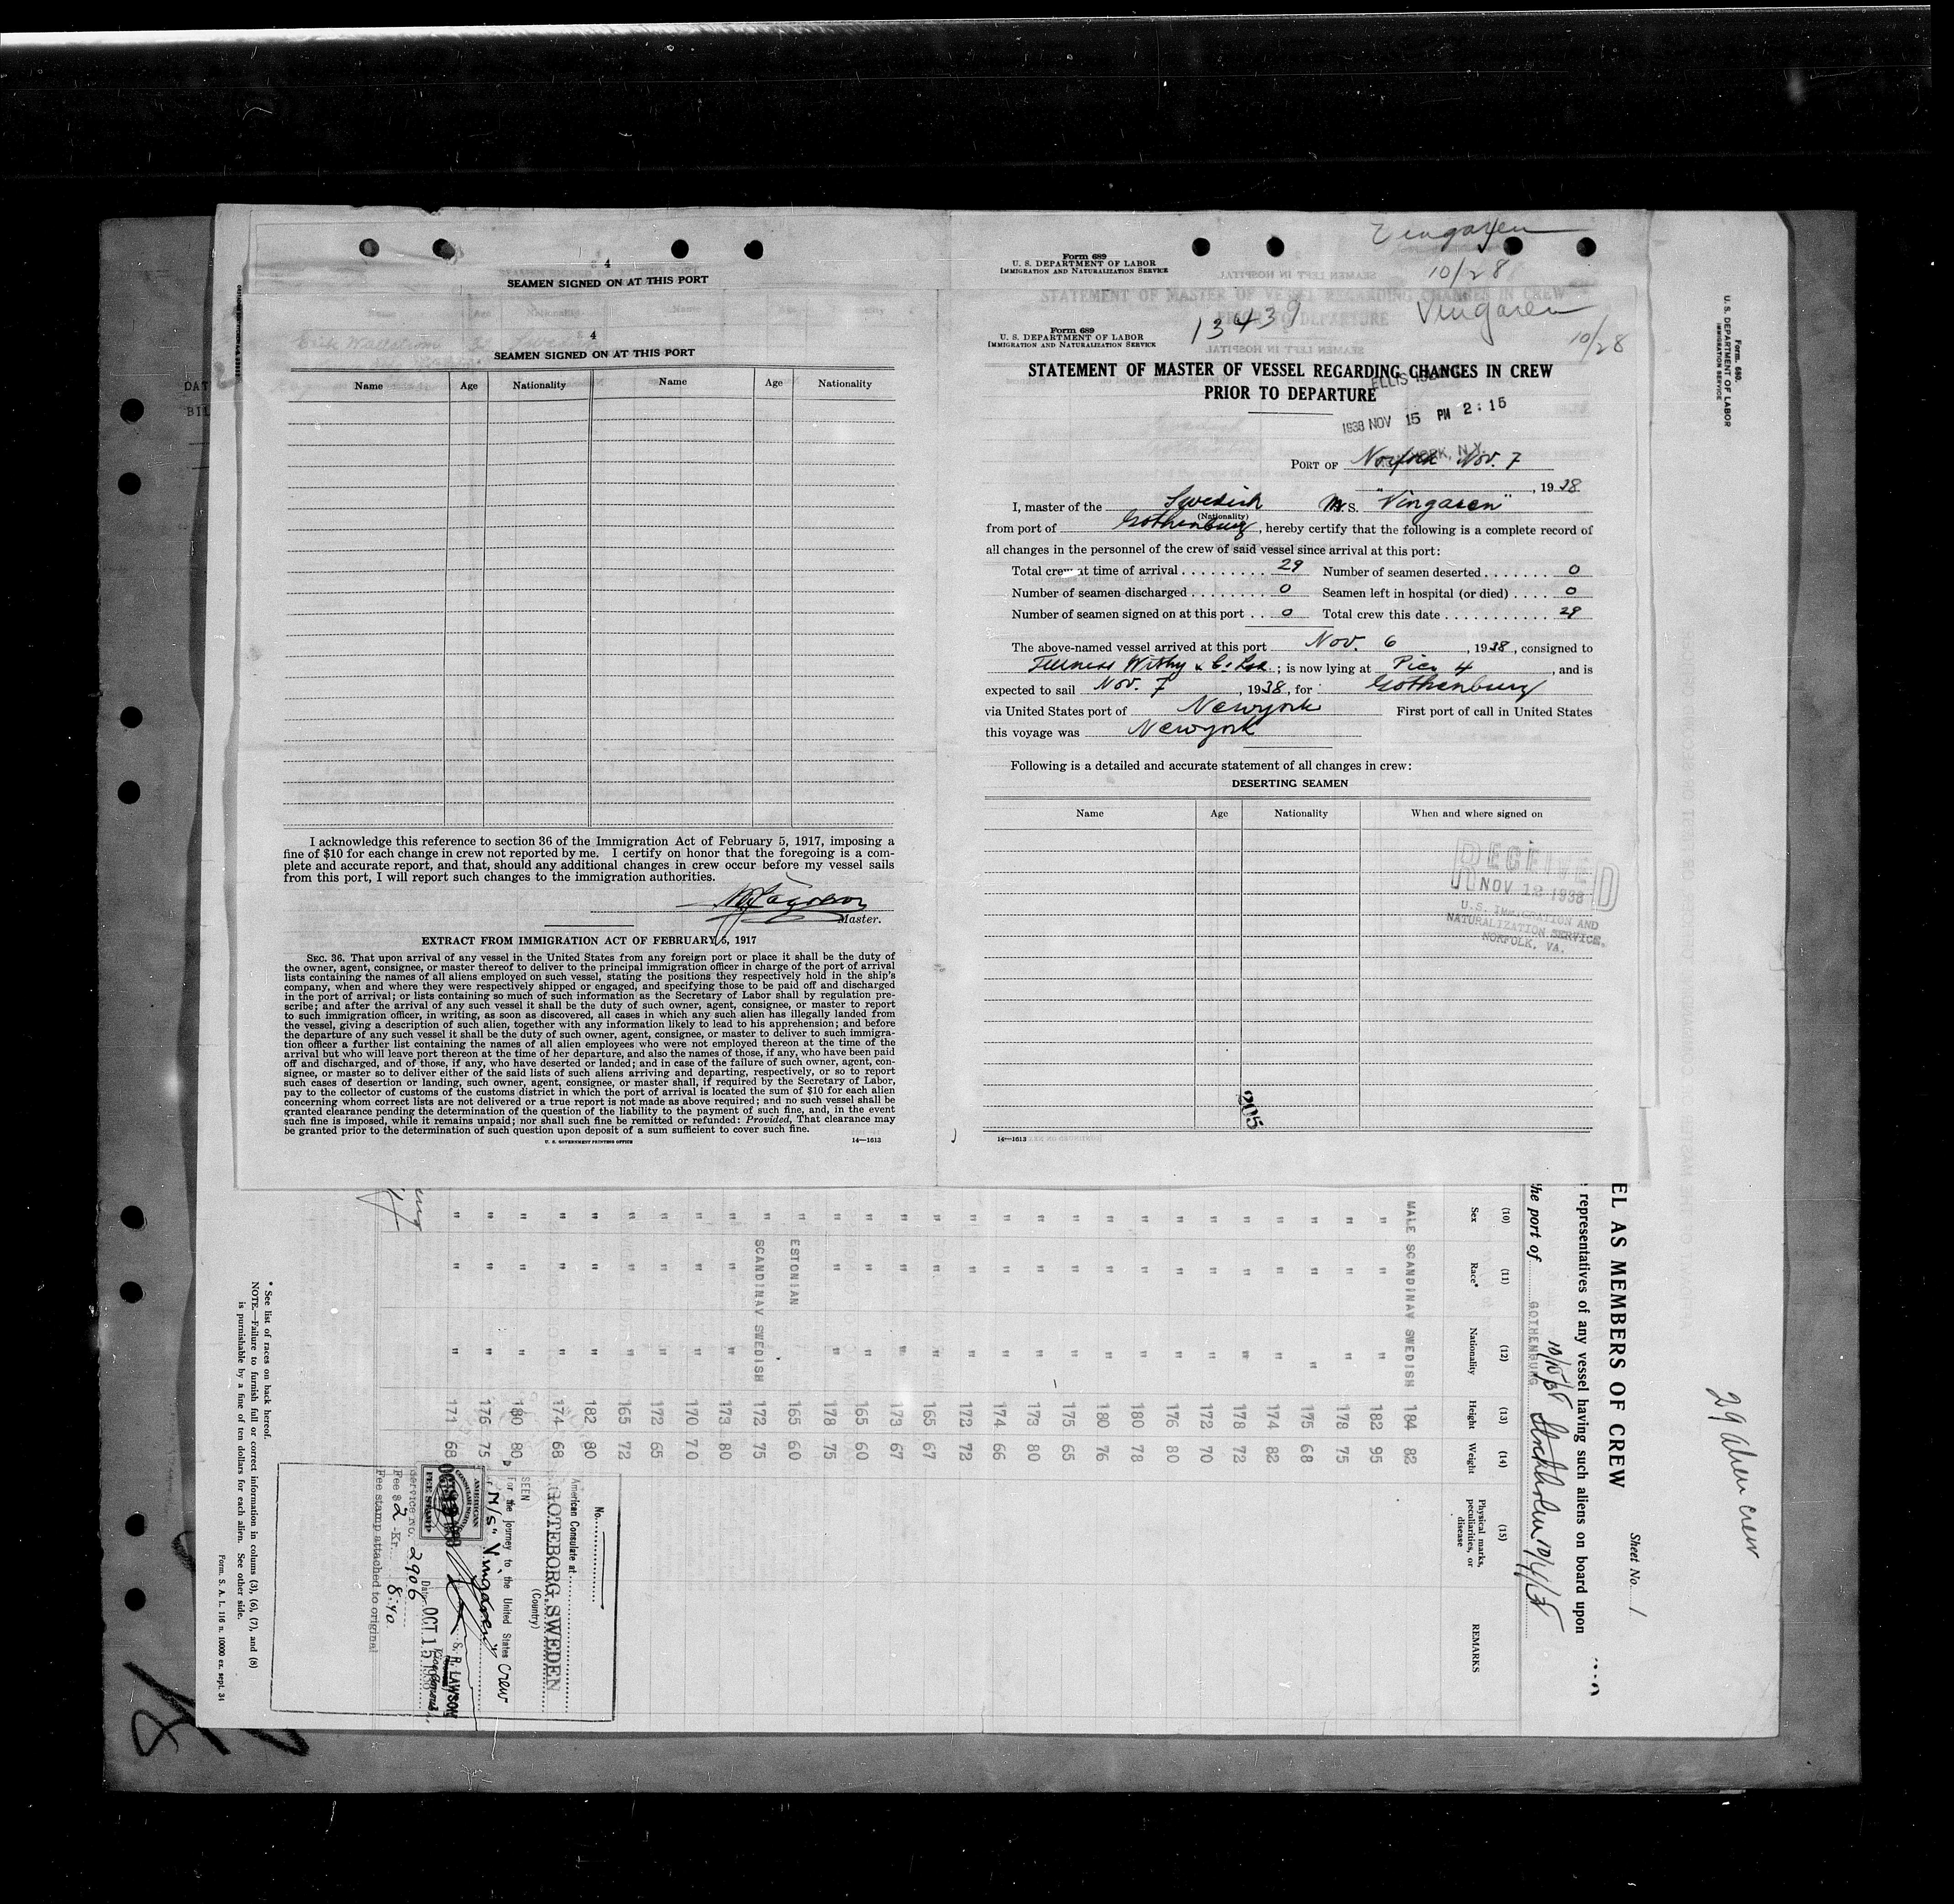 4
SEAMEN SIGNED ON AT THIS PORT
4
SEAMEN SIGNED ON AT THIS PORT
Name Age Nationality Name Age Nationality
I acknowledge this reference to section 36 of the Immigration Act of February 5, 1917, imposing a
fine of $10 for each change in crew not reported by me. I certify on honor that the foregoing is a com-
plete and accurate report, and that, should any additional changes in crew occur before my vessel sails
from this port, I will report such changes to the immigration authorities.
Master.
EXTRACT FROM IMMIGRATION ACT OF FEBRUARY 5, 1917
SEC. 36. That upon arrival of any vessel in the United States from any foreign port or place it shall be the duty of
the owner, agent, consignee, or master thereof to deliver to the principal immigration officer in charge of the port of arrival
lists containing the names of all aliens employed on such vessel, stating the positions they respectively hold in the ship's
company, when and where they were respectively shipped or engaged, and specifying those to be paid off and discharged
in the port of arrival; or lists containing so much of such information as the Secretary of Labor shall by regulation pre-
scribe; and after the arrival of any such vessel it shall be the duty of such owner, agent, consignee, or master to report
to such immigration officer, in writing, as soon as discovered, all cases in which any such alien has illegally landed from
the vessel, giving a description of such alien, together with any information likely to lead to his apprehension; and before
the departure of any such vessel it shall be the duty of such owner, agent, consignee, or master to deliver to such immigra-
tion officer a further list containing the names of all alien employees who were not employed thereon at the time of the
arrival but who will leave port thereon at the time of her departure, and also the names of those, if any, who have been paid
off and discharged, and of those, if any, who have deserted or landed; and in case of the failure of such owner, agent, con-
signee, or master so to deliver either of the said lists of such aliens arriving and departing, respectively, or so to report
such cases of desertion or landing, such owner, agent, consignee, or master shall, if required by the Secretary of Labor,
pay to the collector of customs of the customs district in which the port of arrival is located the sum of $10 for each alien
concerning whom correct lists are not delivered or a true report is not made as above required; and no such vessel shall be
granted clearance pending the determination of the question of the liability to the payment of such fine, and, in the event
such fine is imposed, while it remains unpaid; nor shall such fine be remitted or refunded: Provided, That clearance may
be granted prior to the determination of such question upon deposit of a sum sufficient to cover such fine.
U. S. GOVERNMENT PRINTING OFFICE 14—1613
Vingaren
10/28
Form 689
U. S. DEPARTMENT OF LABOR
IMMIGRATION AND NATURALIZATION SERVICE
STATEMENT OF MASTER OF VESSEL REGARDING CHANGES IN CREW
PRIOR TO DEPARTURE
13439
Vingaren
10/28
Form 689
U. S. DEPARTMENT OF LABOR
IMMIGRATION AND NATURALIZATION SERVICE
STATEMENT OF MASTER OF VESSEL REGARDING CHANGES IN CREW
PRIOR TO DEPARTURE
ELLIS ISLAND
1938 NOV 15 PM 2:15
NEW YORK, N.Y.
PORT OF Norfolk Nov. 7
, 1938
I, master of the Swedish M.S. "Vingaren"
(Nationality)
from port of Gothenburg, hereby certify that the following is a complete record of
all changes in the personnel of the crew of said vessel since arrival at this port:
Total crew at time of arrival 29 Number of seamen deserted 0
Number of seamen discharged 0 Seamen left in hospital (or died) 0
Number of seamen signed on at this port 0 Total crew this date 29
The above-named vessel arrived at this port Nov. 6, 1938, consigned to
Furness Withy & Co Ltd.; is now lying at Pier 4, and is
expected to sail Nov. 7, 1938, for Gothenburg
via United States port of Newyork First port of call in United States
this voyage was Newyork
Following is a detailed and accurate statement of all changes in crew:
DESERTING SEAMEN
Name Age Nationality When and where signed on
RECEIVED
NOV 12 1938
U.S. IMMIGRATION AND
NATURALIZATION SERVICE,
NORFOLK, VA.
805
14—1613
Form 680.
U. S. DEPARTMENT OF LABOR
IMMIGRATION SERVICE
29 alien crew
Sheet No. 1
EL AS MEMBERS OF CREW
representatives of any vessel having such aliens on board upon
the port of GOTHENBURG 10/15/38 Stockholm 10/4/38
(10) (11) (12) (13) (14) (15)
Sex Race* Nationality Height Weight Physical marks, peculiarities, or disease REMARKS
MALE SCANDINAV SWEDISH 184 82
" " " 182 95
" " " 178 75
" " " 175 68
" " " 174 82
" " " 178 72
" " " 172 70
" " " 176 80
" " " 180 78
" " " 180 76
" " " 175 65
" " " 173 80
" " " 174 66
" " " 172 72
" " " 165 67
" " " 173 67
" " " 165 60
" " " 178 75
" ESTONIAN 165 60
" SCANDINAV SWEDISH 172 75
" " " 173 80
" " " 170 70
" " " 172 65
" " " 165 72
" " " 182 80
" " " 174 68
" " " 180 80
" " " 176 75
" " " 171 68
No.
American Consulate at
GOTEBORG, SWEDEN
(Country)
SEEN
For the journey to the United States
M/s "Vingaren" crew
AMERICAN
CONSULAR SERVICE
FEE STAMP
S. R. LAWSON
Date OCT 15
Service No. 2906
Fee $ 2 -Kr. 8:40
Fee stamp attached to original
* See list of races on back hereof.
NOTE.—Failure to furnish full or correct information in colums (3), (6), (7), and (8)
is punishable by a fine of ten dollars for each alien. See other side.
Form. S. A. L. 116 n. 10000 ex. sept. 34
DAT
BIL